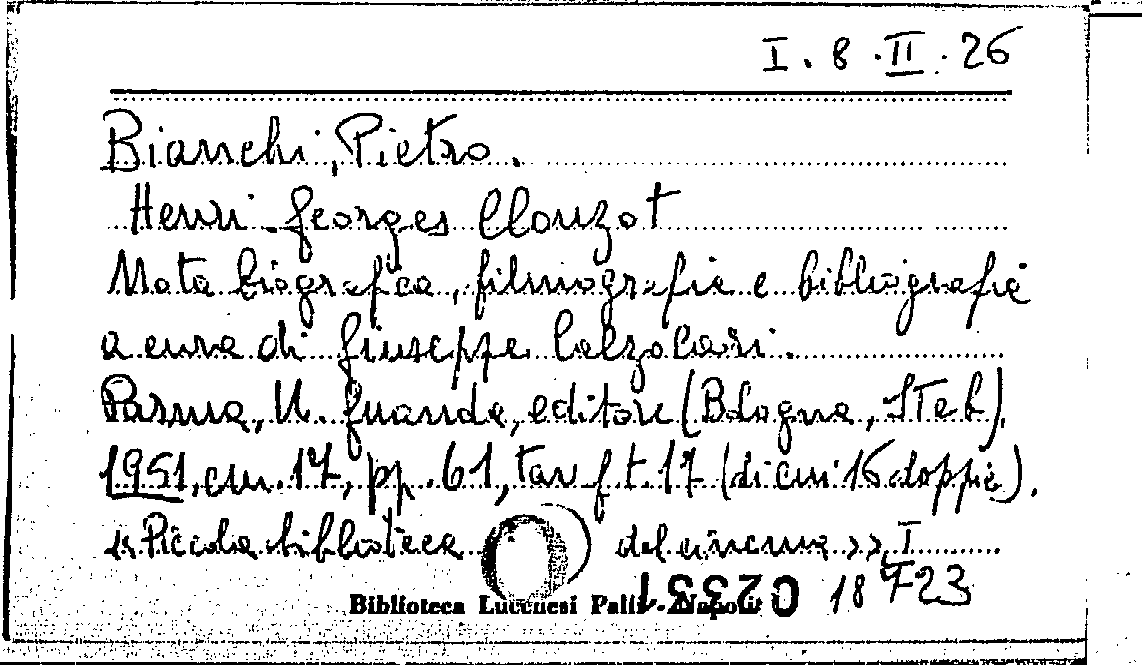 I. 8 . II . 26
Bianchi, Pietro.
Henri-Georges Clouzot
Nota biografica, filmografia e bibliografia
a cura di Giuseppe Calzolari.
Parma, U. Guanda, editore (Bologna, STEB),
1951, cm. 17, pp. 61, tav f. t. 17 (di cui 16 doppie).
« Piccola biblioteca del cinema », I
18723
Biblioteca Lucchesi Palli - Napoli